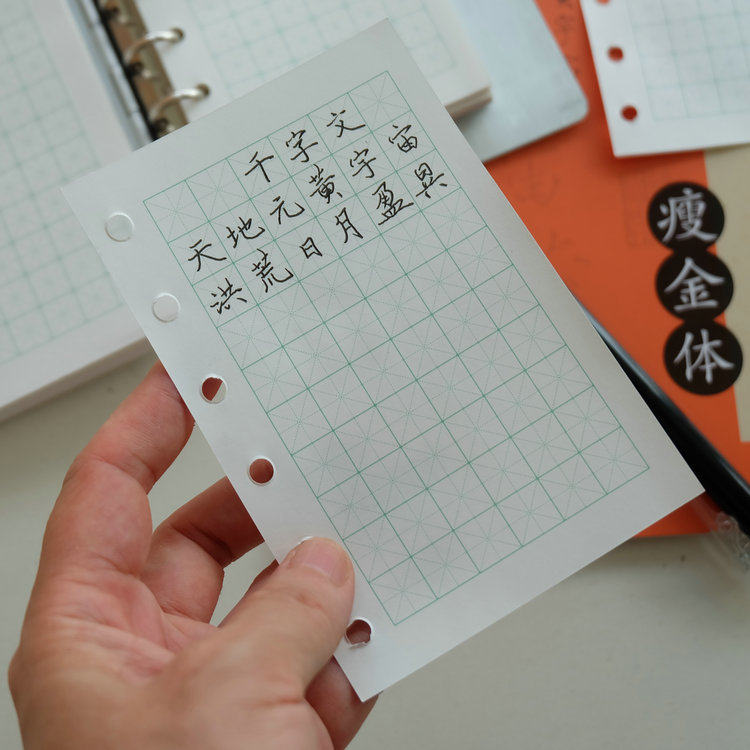 千字文
天地元黃宇宙
洪荒日月盈昃
瘦金体